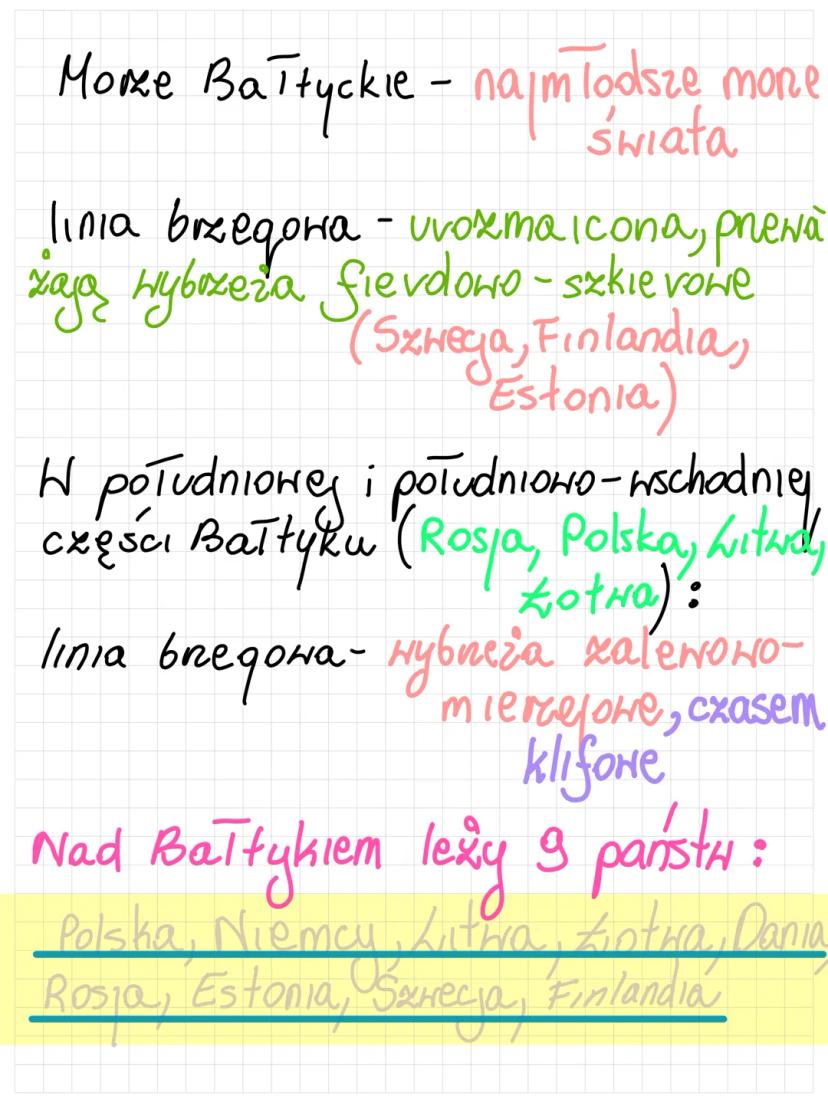 Morze Bałtyckie - najmłodsze morze
świata
linia brzegowa - urozmaicona, przewa
żają wybrzeża fierdowo-szkierowe
(Szwecja, Finlandia,
Estonia)
W południowej i południowo-wschodniej
części Bałtyku (Rosja, Polska, Litwa,
Łotwa):
linia brzegowa- wybrzeża zalewowo-
mierzejowe, czasem
klifowe
Nad Bałtykiem leży 9 państw:
Polska, Niemcy, Litwa, Łotwa, Dania,
Rosja, Estonia, Szwecja, Finlandia